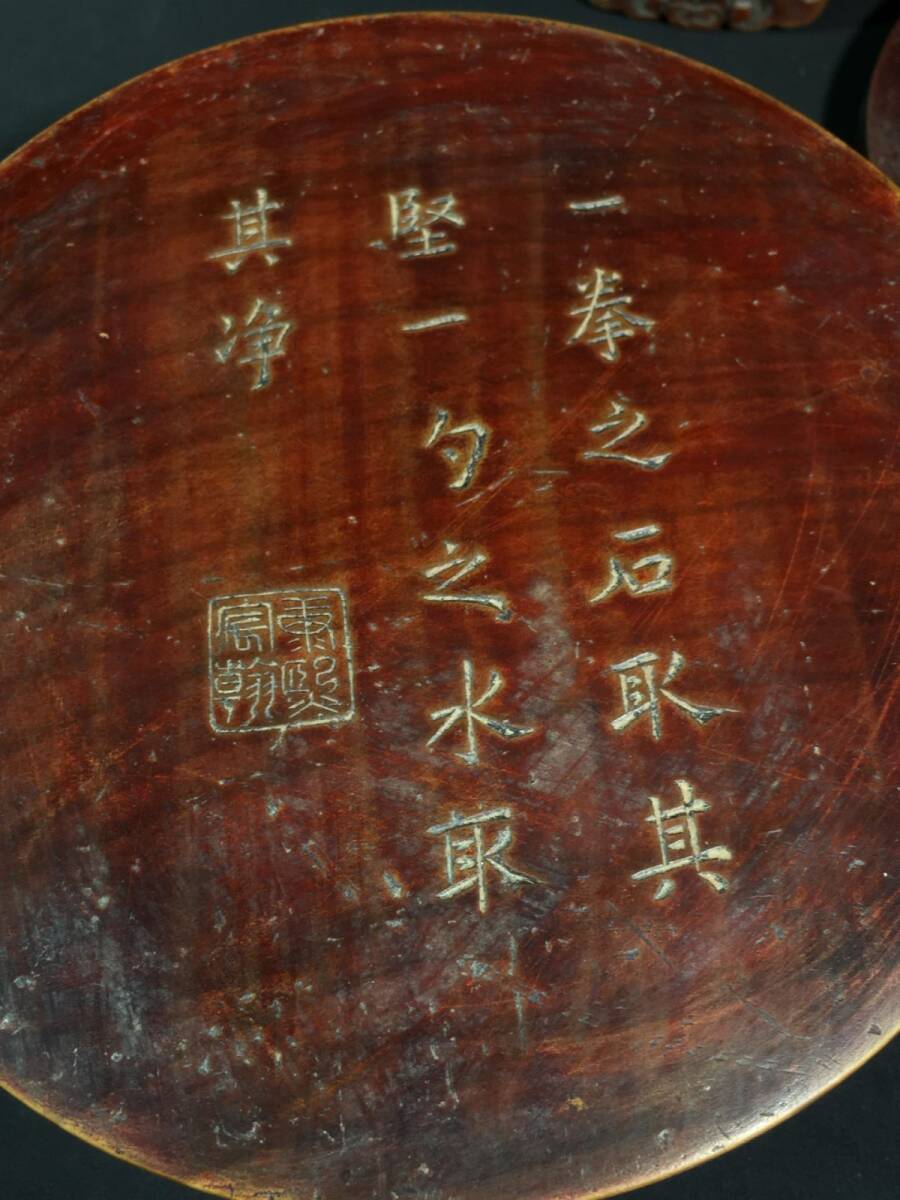 一拳之石取其
堅一勺之水取
其净
秉熙
宸翰